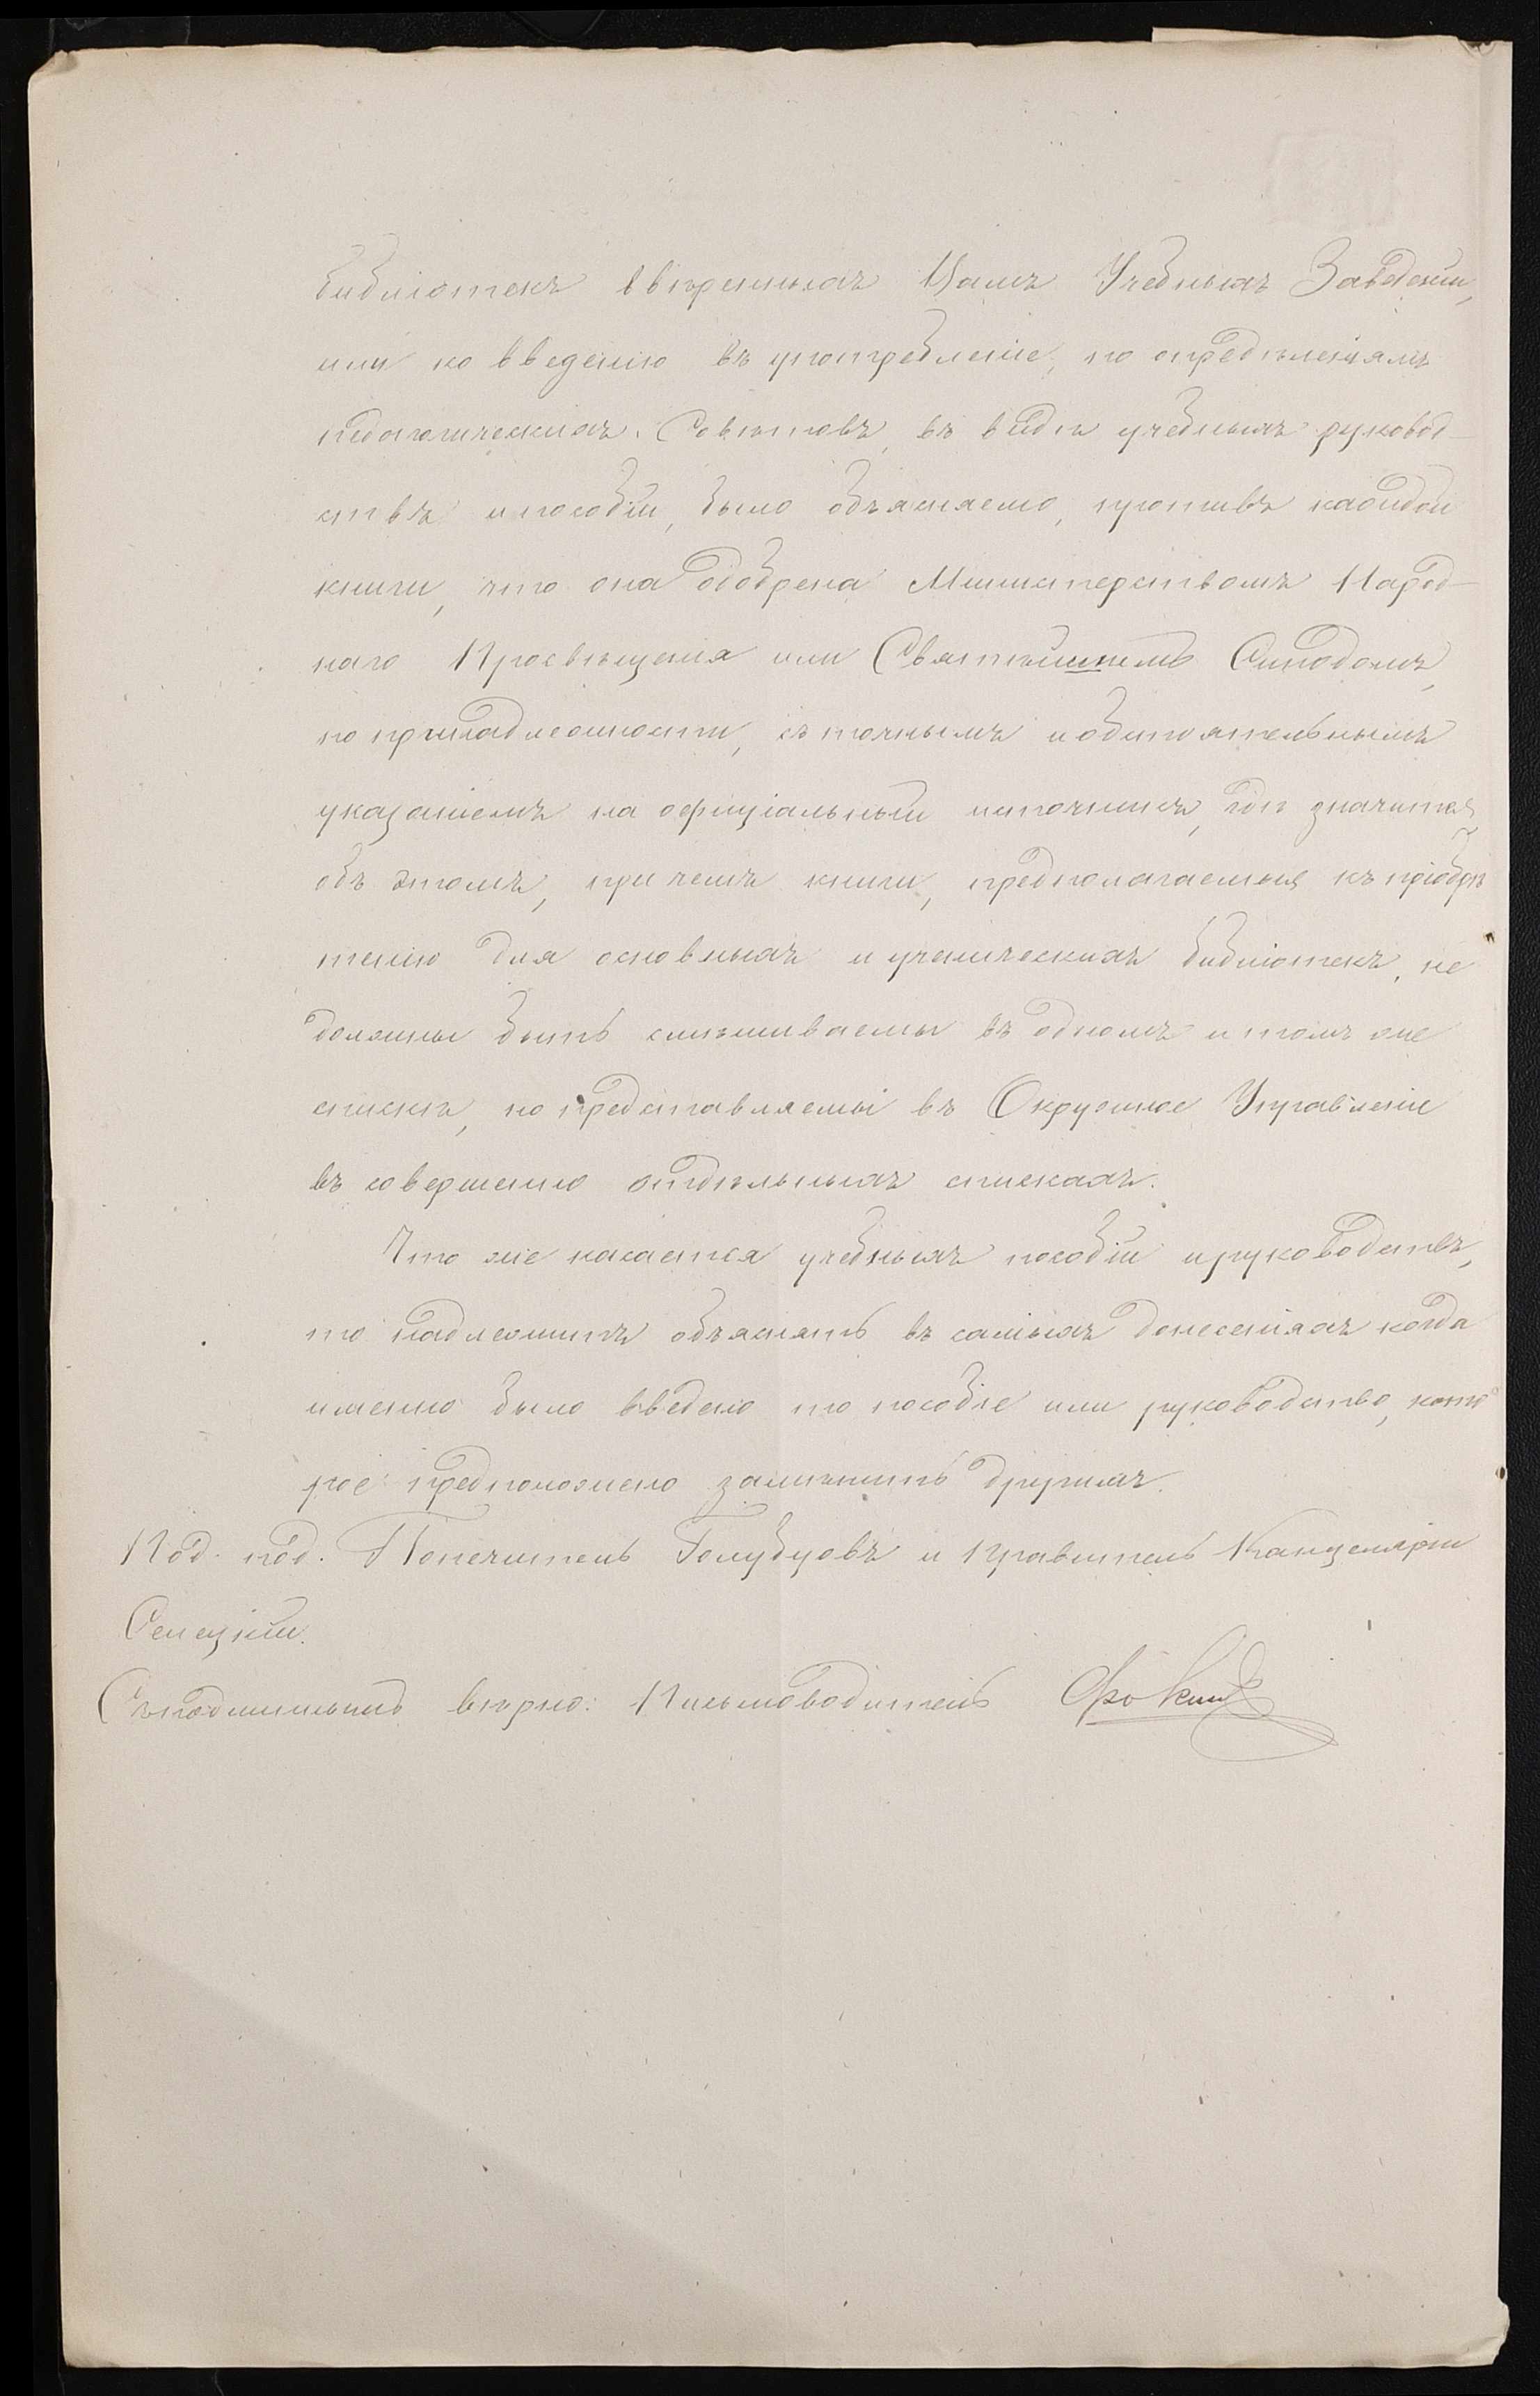 библіотекъ ввѣренныхъ Вамъ Учебныхъ Заведеній,
или ко введенію въ употребленіе, по опредѣленіямъ
педагогическихъ Совѣтовъ, въ видѣ учебныхъ руковод-
ствъ и пособій, было объясняемо, противъ каждой
книги, что она одобрена Министерствомъ Народ-
наго Просвѣщенія или Святѣйшимъ Синодомъ,
по принадлежности, съ точнымъ и обстоятельнымъ
указаніемъ на офиціальный источникъ, гдѣ значится
объ этомъ, при чемъ книги, предполагаемыя къ пріобрѣ
тенію для основныхъ и ученическихъ библіотекъ, не
должны быть смѣшиваемы въ одномъ и томъ же
спискѣ, но представляемы въ Окружное Управленіе
въ совершенно отдѣльныхъ спискахъ.
Что же касается учебныхъ пособій и руководствъ,
то надлежитъ объяснять въ самыхъ донесеніяхъ когда
именно было введено то пособіе или руководство, кото
рое предположено замѣнить другимъ.
Под. под. Попечитель Голубцовъ и Правитель Канцеляріи
Съ подлиннымъ вѣрно: Письмоводитель Фокинъ